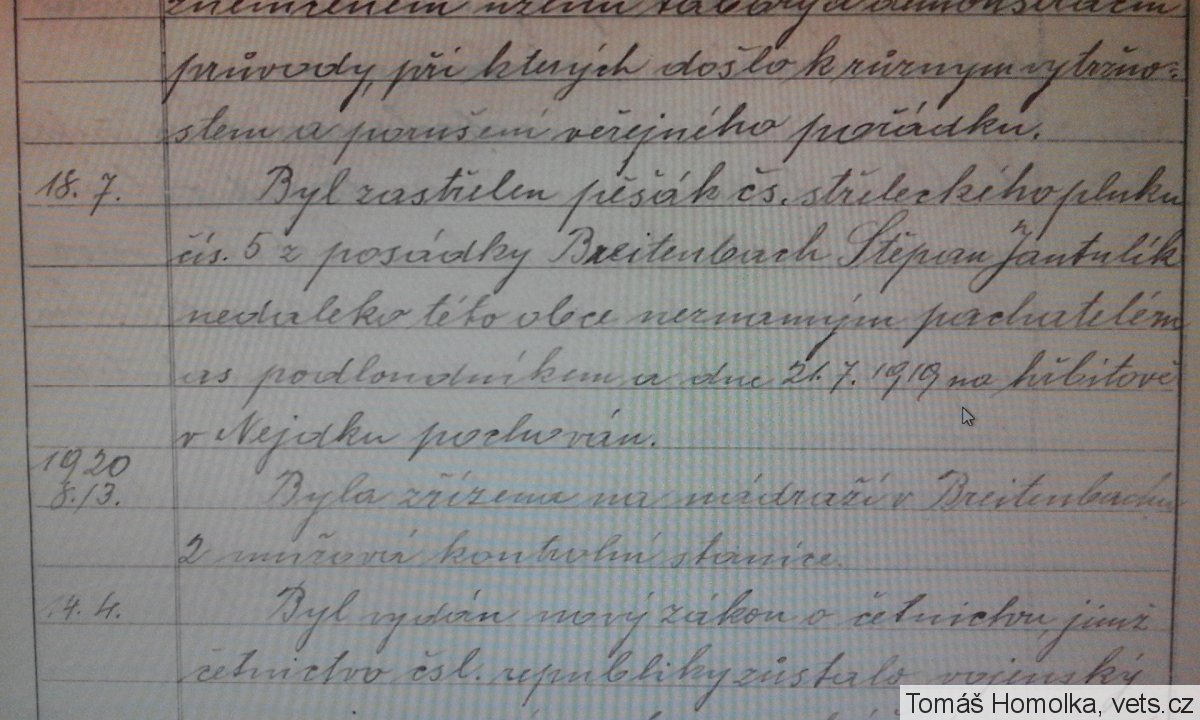 zněmčeném území tábory a demonstrační
průvody, při kterých došlo k různym vytržno-
stem a porušení veřejného pořádku.
18. 7. Byl zastřelen pěšák čs. střeleckého pluku
čís. 5 z posádky Breitenbach Štěpan Jantulík
nedaleko této obce neznamným pachatelém
as podloudníkem a dne 21. 7. 1919 na hřbitově
v Nejdku pochován.
1920
8./3. Byla zřízena na nádraží v Breitenbachu
2 mužová kontrolní stanice.
14. 4. Byl vydán nový zákon o četnictvu, jimž
četnictvo čsl. republiky zůstalo vojenský
Tomáš Homolka, vets.cz